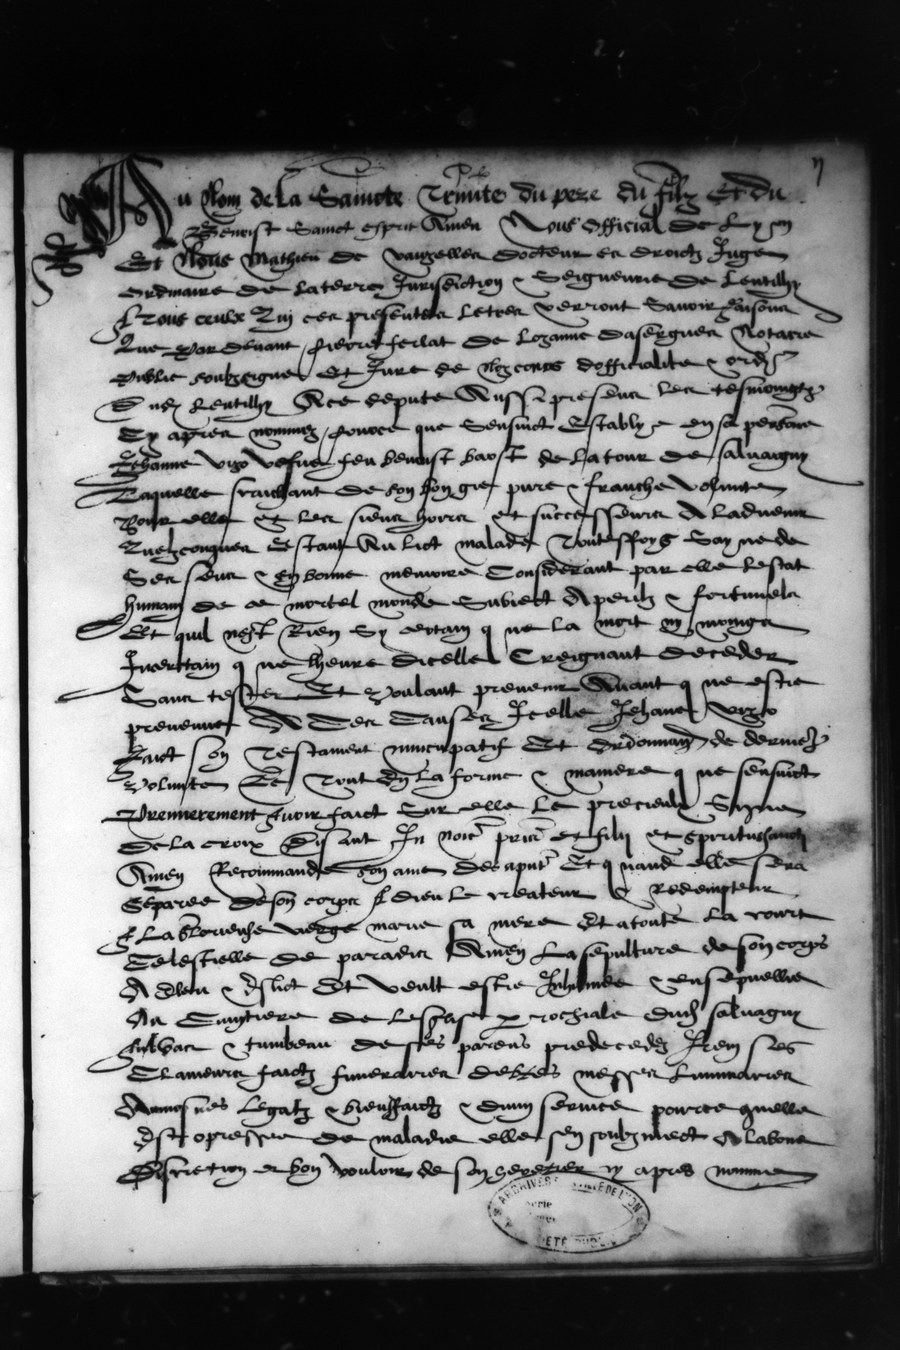 Au Nom de la Saincte Trinite du pere du filz Et du
Benoist Sainct esprit Amen Nous Official de Lyon
Et Nous Mathieu de Vauzelles docteur es droictz Juge
ordinaire de la terre Jurisdiction & Seigneurie de Lentilly
A tous ceulx Qui ces presentes letres verront Savoir faisons
Que Par devant pierre ferlat de Lozanne dasergues Notaire
public soubzsigne Et Jure de Noz cours dofficialite & ord
Dud Lentilly A ce depute Aussi presens les tesmoingtz
Cy apres nommez Comme que Sensuict Establye en sa personne
Jehanne Vigo Vefue feu benoist baost de la tour de salvaigny
Laquelle saichant de son bon gre pure & franche Volunte
Pour elle et les siens hoirs et successeurs A ladvenir
Quelzconques Estant Au lict malade Touteffoys Sayne de
Ses sens & En bonne memoire Considerant par elle Lestat
humain de ce mortel monde Subiect A perilz & fortunes
Et quil nest Rien Sy certain que la mort ny moings
Incertain que lheure dicelle Creignant deceder
Sans tester Et Voulant prevenir Avant que estre
prevenue A Ces Causes Icelle Jehanne Vigo
Faict son Testament nuncupatif Et Ordonnance de derniere
Volunte Et Tout En la forme & maniere que sensuict
Premierement Avoir faict Sur elle Le precieulx Signe
De la croix Disant In noie pris et filij et spiritus sancti
Amen Recommande son ame des apnt Et quand elle sera
Separee de son corps A dieu le createur & Redempteur
A La glorieuse vierge marie sa mere Et a toute la court
Celestielle de paradis Amen La sepulture de son corps
A Esleu & Eslict Et Veult estre Inhumee & ensepuellie
Au Cimytiere de Lesglise parrochiale Dud salvagny
Au Vas & tumbeau de ses parens predecedez Item ses
Clameurs faictz funeraires debtes messes Luminaires
Aumosnes Legatz & bienffaictz & divin service pource quelle
Est opressee de maladie elle sen soubzmect A la bone
Discretion et bon vouloir de son heretier cy apres nomme
ARCHIVES DE LYON